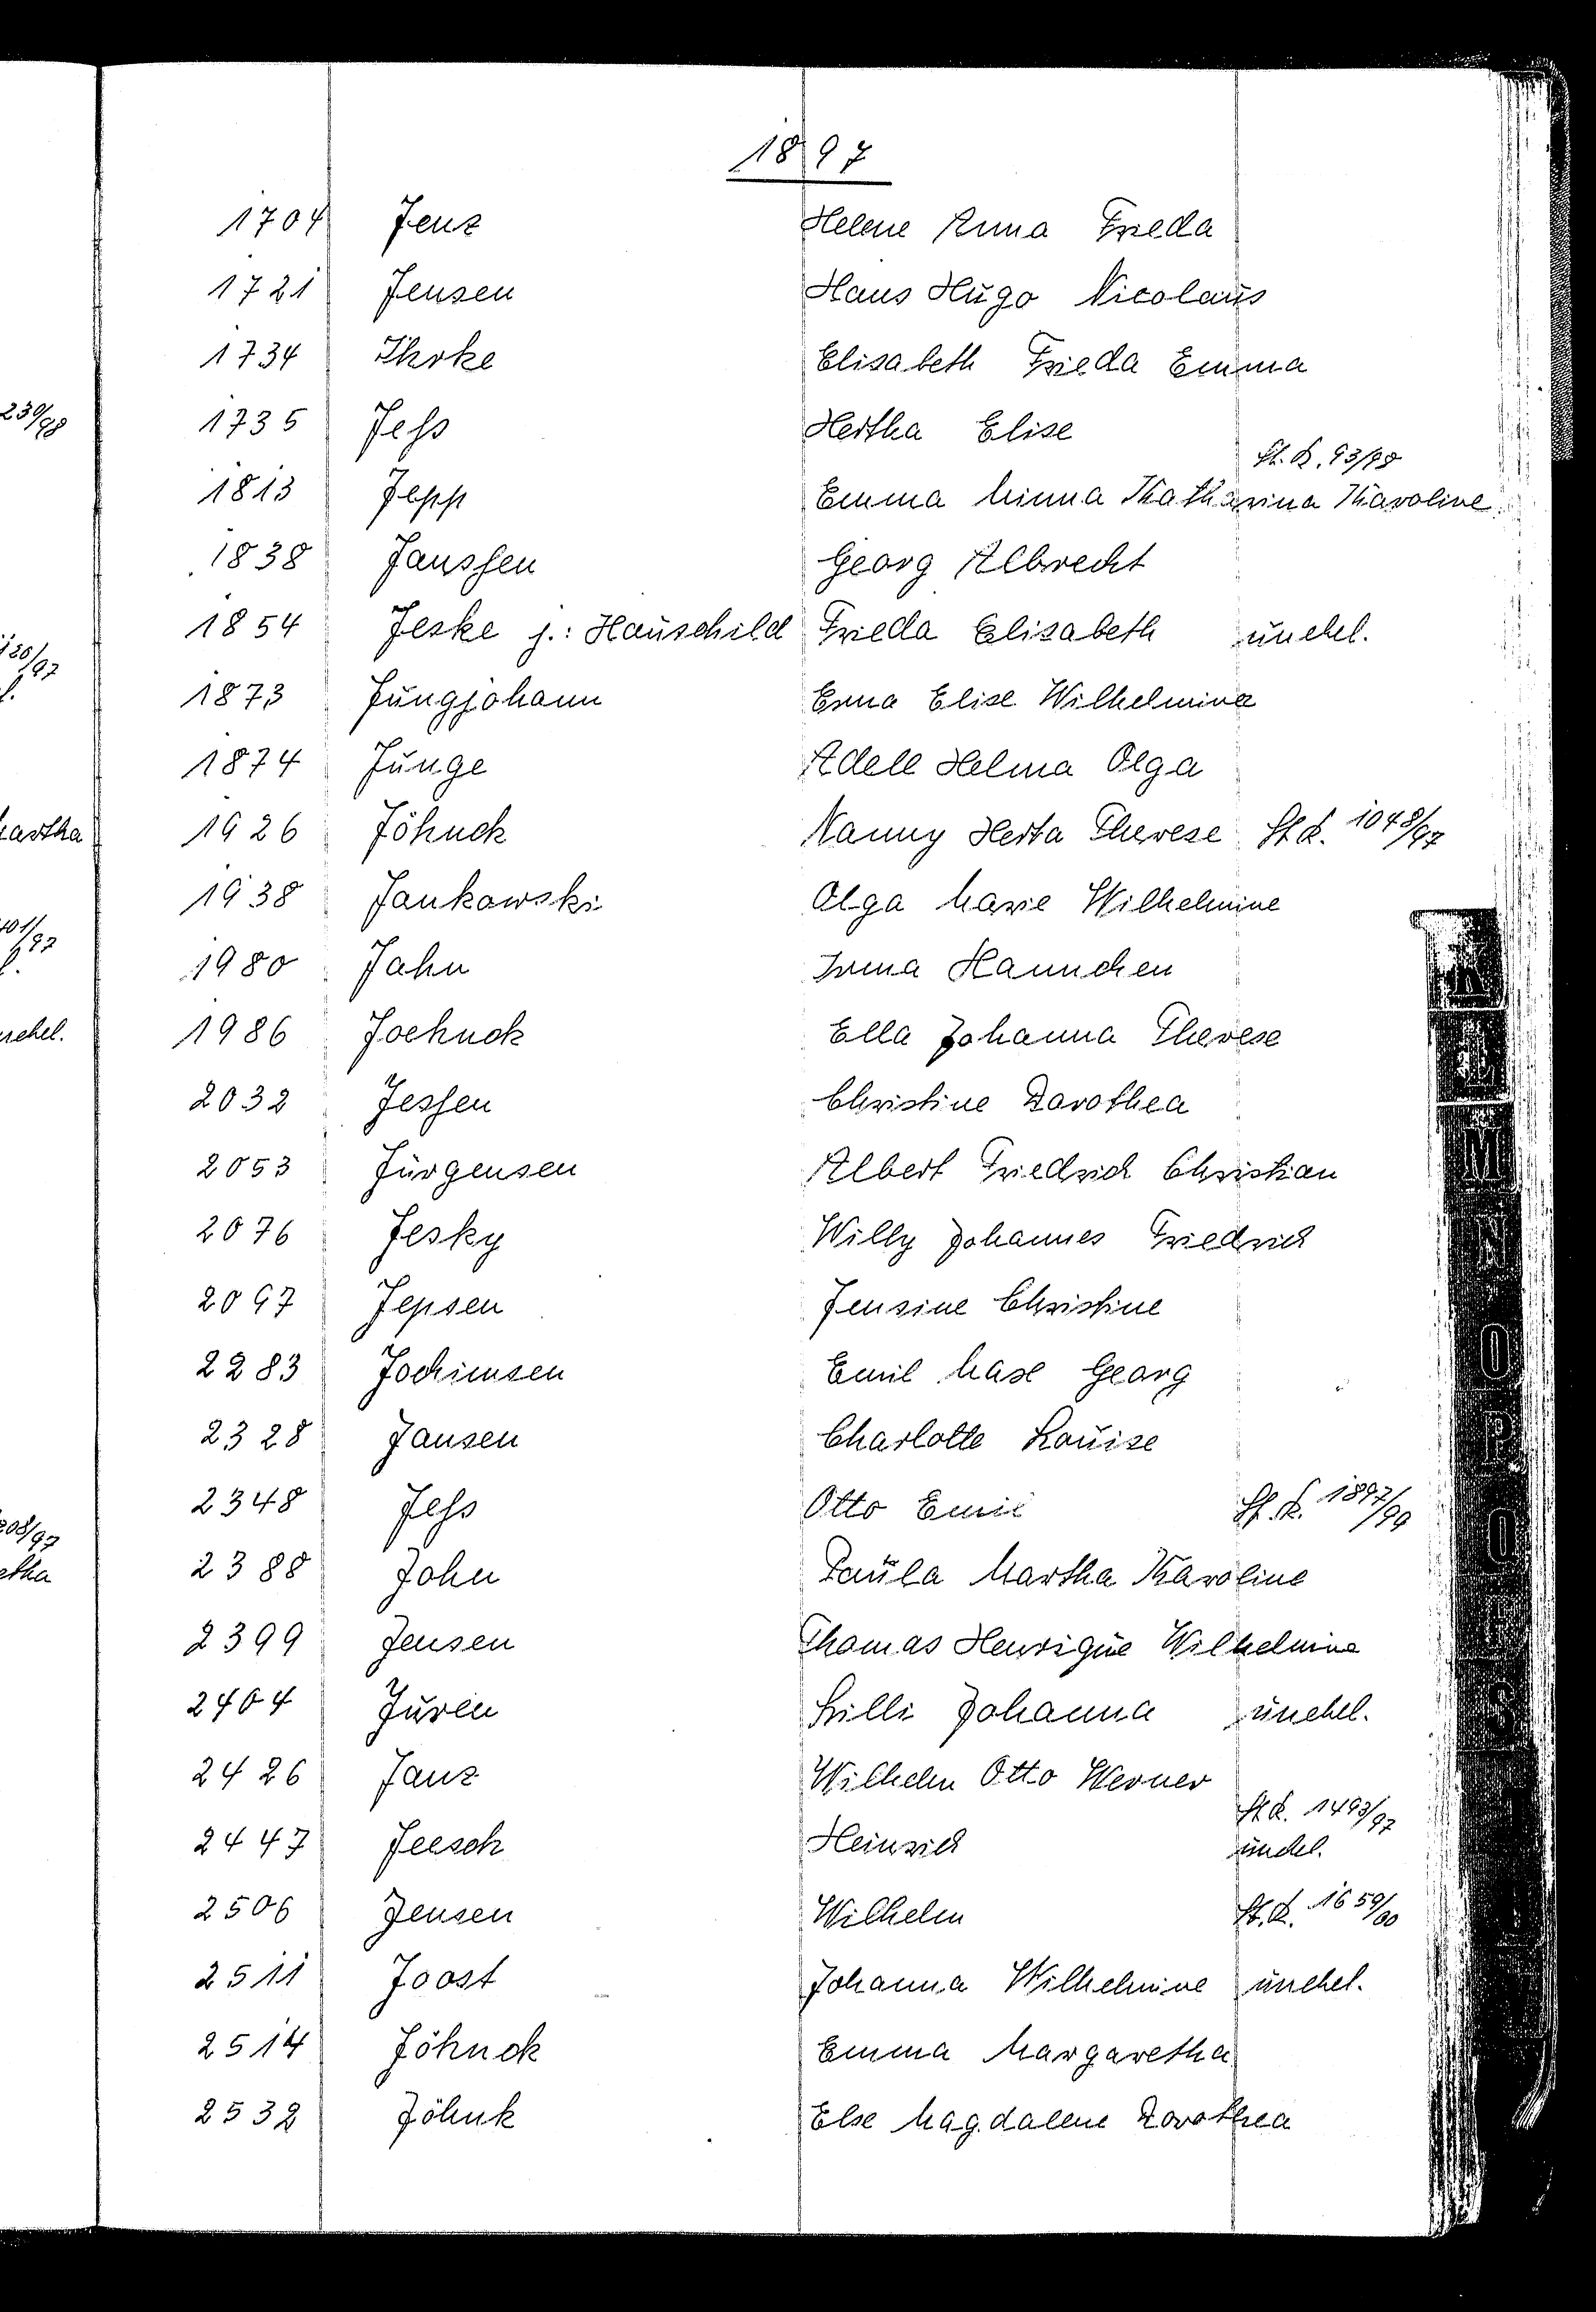 1897
1704 Jenz Helene Anna Frieda
1721 Jensen Hans Hugo Nicolaus
1734 Ihrke Elisabeth Frieda Emma
230/98
1735 Jeß Hertha Elise
St. A. 93/98
1813 Jepp Emma Minna Katharina Karoline
1838 Janssen Georg Albrecht
1854 Jeske j.: Hauschild Frieda Elisabeth unehel.
120/97
1873 Jungjohann Erna Elise Wilhelmine
1874 Junge Adele Helma Olga
artha 1926 Jöhnck Nanny Herta Therese St. A. 1048/97
1938 Jankowski Olga Marie Wilhelmine
101/97
1980 Jahn Irma Hannchen
nehel. 1986 Joehnck Ella Johanna Therese
2032 Jessen Christine Dorothea
2053 Jürgensen Albert Friedrich Christian
2076 Jesky Willy Johannes Friedrich
2097 Jepsen Jensine Christine
2283 Jochimsen Emil Georg
2328 Jansen Charlotte Louise
2348 Jeß Otto Emil St. A. 1897/99
208/97
etha 2388 John Paula Martha Karoline
2399 Jensen Thomas Henrique Wilhelmine
2404 Juren Lilli Johanna unehel.
2426 Janz Wilhelm Otto Werner
St. A. 1493/97
2447 Jeesch Heinrich unehel.
2506 Jensen Wilhelm St. A. 1659/00
2511 Joost Johanna Wilhelmine unehel.
2514 Jöhnck Emma Margaretha
2532 Jöhnk Else Magdalene Dorothea
K
L
M
N
O
P
Q
S